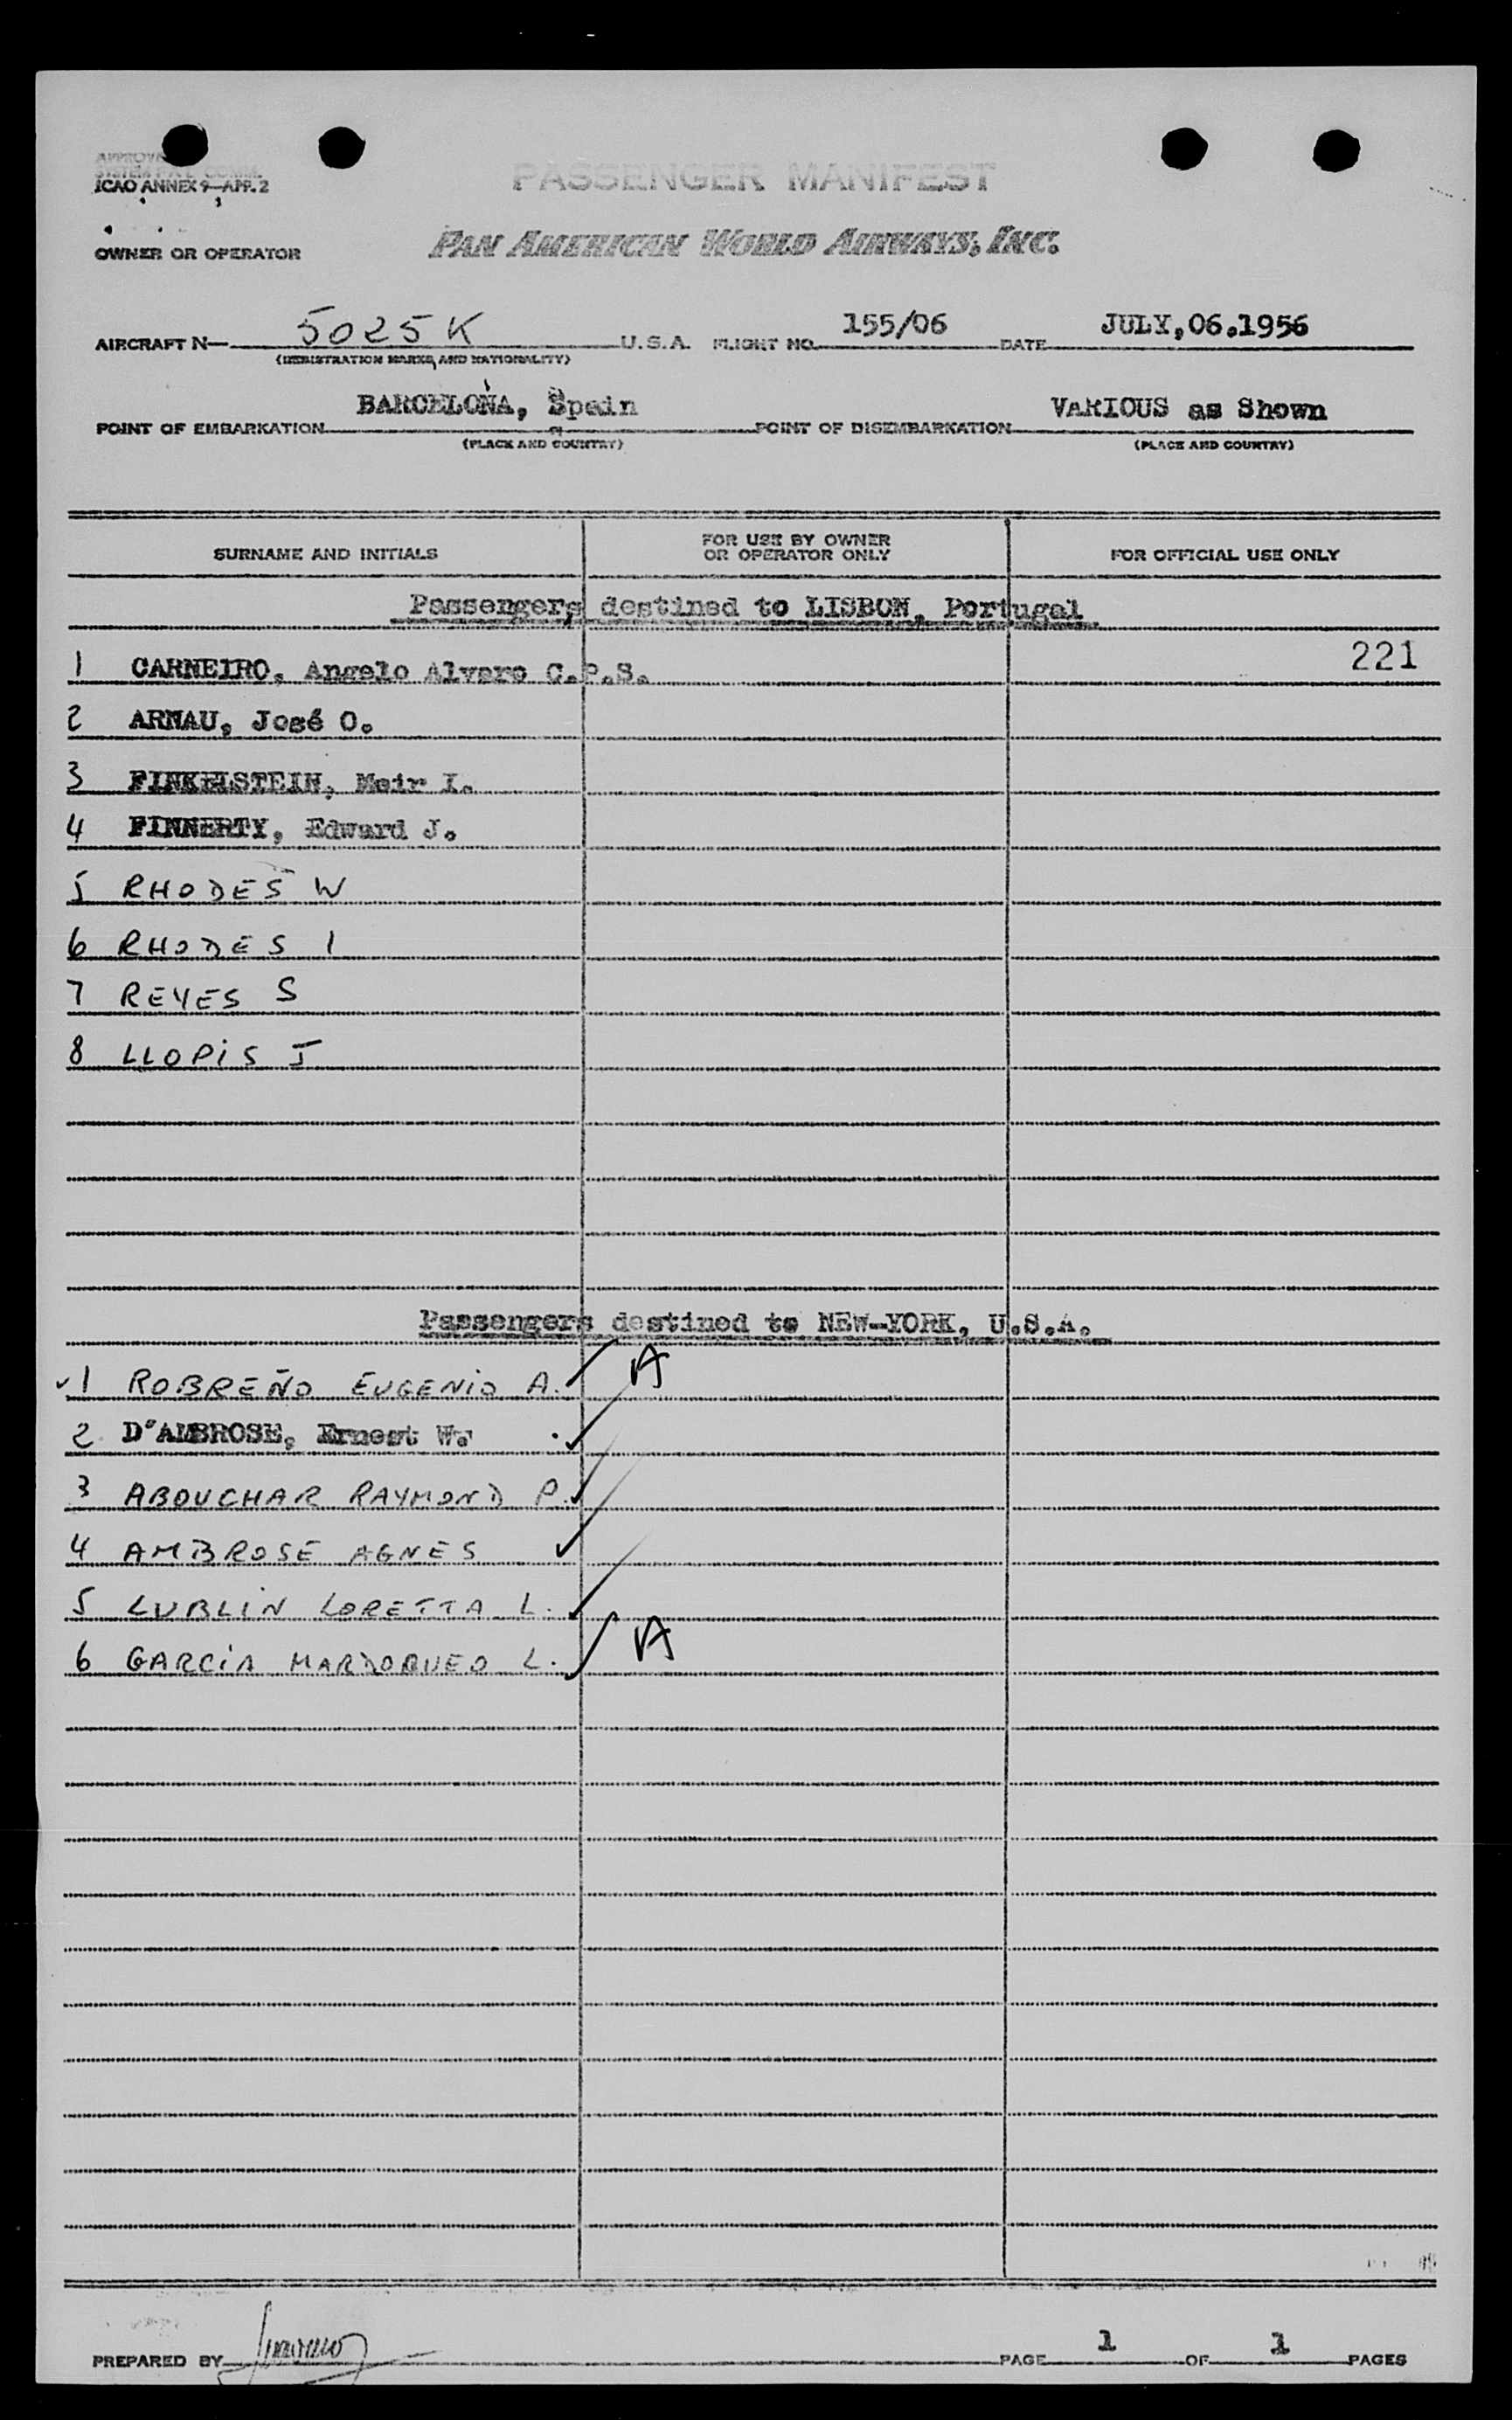 ICAO ANNEX 9—APP. 2
PASSENGER MANIFEST
OWNER OR OPERATOR PAN AMERICAN WORLD AIRWAYS, INC.
AIRCRAFT N— 5025K U.S.A. FLIGHT NO. 155/06 DATE JULY,06.1956
(REGISTRATION MARKS AND NATIONALITY)
POINT OF EMBARKATION BARCELONA, Spain POINT OF DISEMBARKATION VARIOUS as Shown
(PLACE AND COUNTRY) (PLACE AND COUNTRY)
SURNAME AND INITIALS FOR USE BY OWNER OR OPERATOR ONLY FOR OFFICIAL USE ONLY
Passengers destined to LISBON, Portugal
1 CARNEIRO, Angelo Alvaro C.P.S. 221
2 ARNAU, José O.
3 FINKELSTEIN, Meir I.
4 FINNERTY, Edward J.
5 RHODES W
6 RHODES I
7 REYES S
8 LLOPIS J
Passengers destined to NEW-YORK, U.S.A.
✓1 ROBREÑO EUGENIO A. ✓ A
2 D'AMBROSE, Ernest W. ✓
3 ABOUCHAR RAYMOND P. ✓
4 AMBROSE AGNES ✓
5 LUBLIN LORETTA L. ✓
6 GARCIA MARDOQUEO L. ✓ A
PREPARED BY PAGE 1 OF 1 PAGES